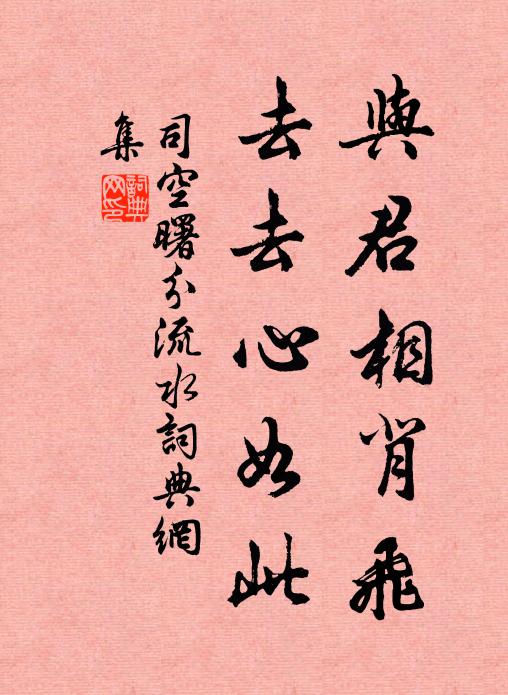 與君相背飛
去去心如此
司空曙分流水詞典網
集
詞典网印